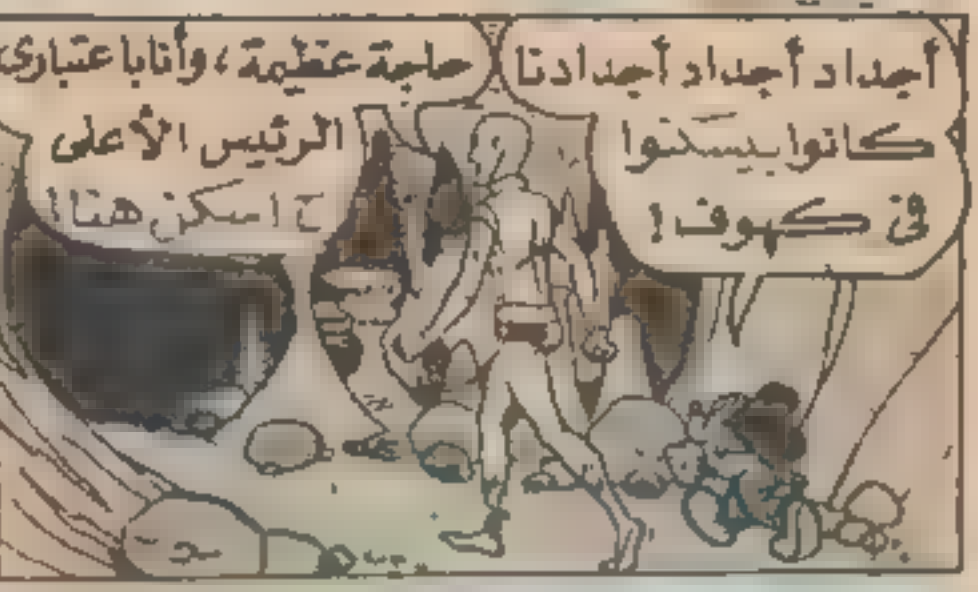 أجداد أجداد أجدادنا
كانوا بيسكنوا
فى كهوف !
حاجة عظيمة ، وأنا باعتبارى
الرئيس الأعلى
ح اسكن هنا !